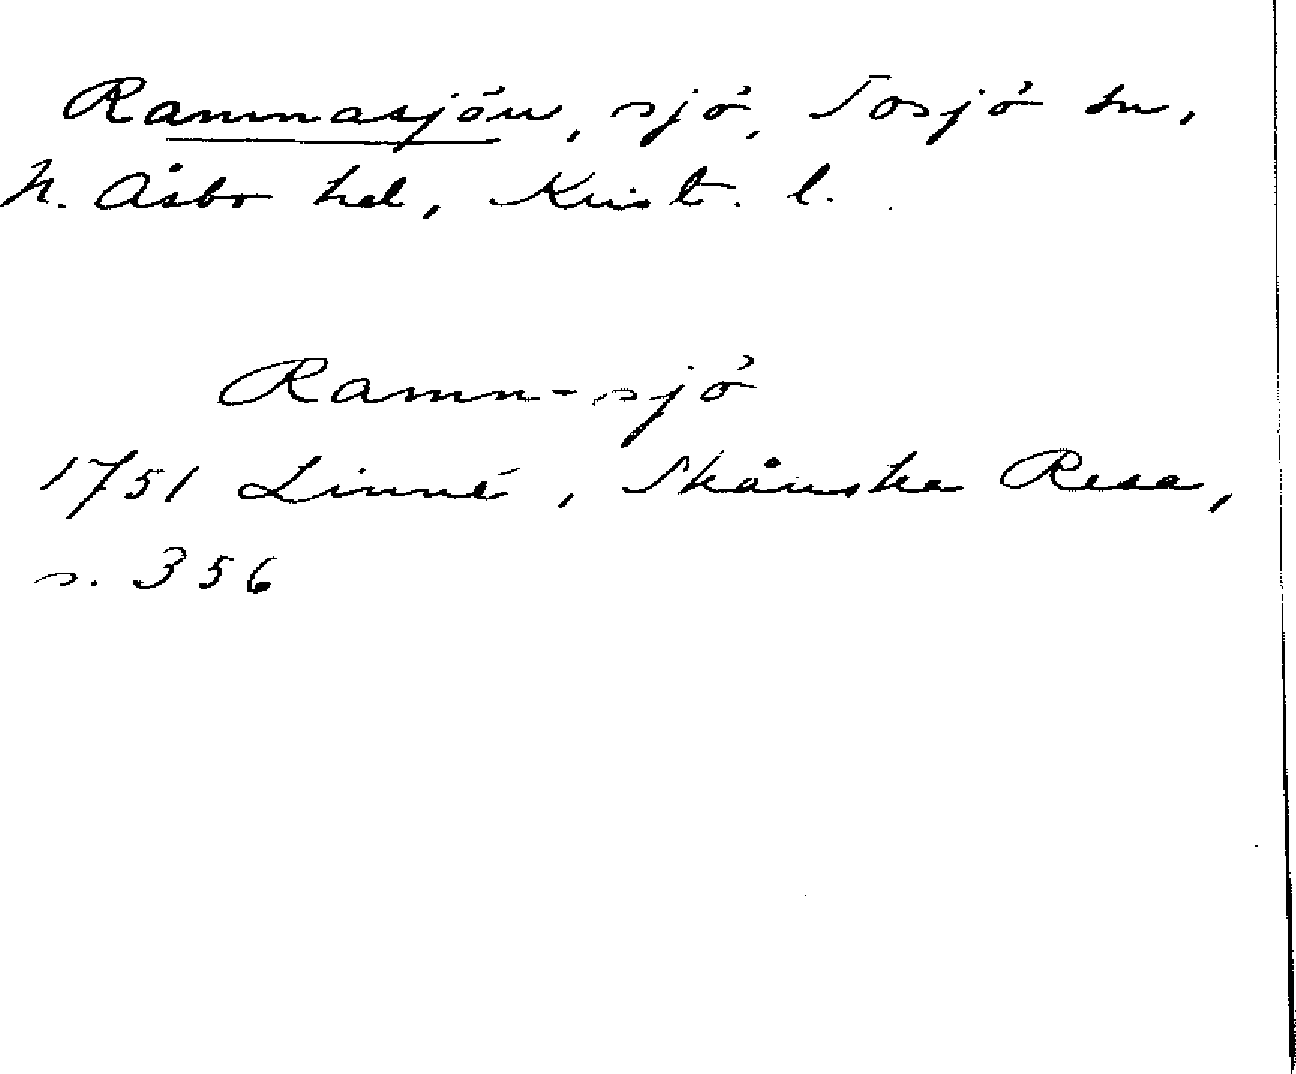 Rammasjön, sjö, Tosjö sn,
N. Åsbo hd, Krist. l.
Ramn-sjö
1751 Linné, Skånska Resa,
s. 356